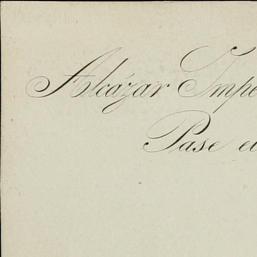 Alcázar Impe
Pase e